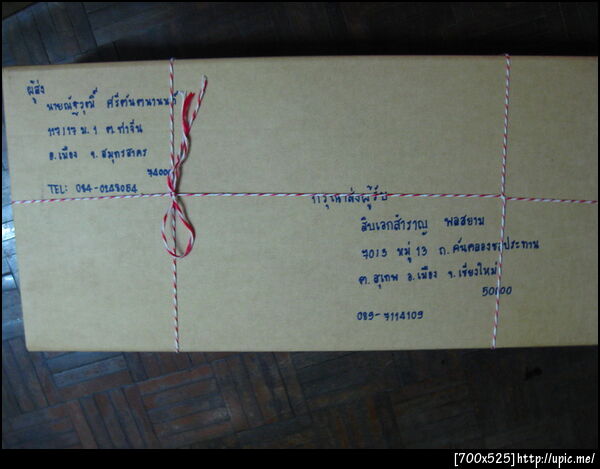 ผู้ส่ง
นายณัฐวุฒิ์ ศรีตันตนานนท์
117/17 ม.1 ต.ท่าจีน
อ.เมือง จ.สมุทรสาคร
74000
TEL: 084-0148084
กรุณาส่งผู้รับ
สิบเอกสำราญ พลสยาม
7013 หมู่ 13 ถ.คันคลองชลประทาน
ต.สุเทพ อ.เมือง จ.เชียงใหม่
50000
089-7114109
[700x525]http://upic.me/